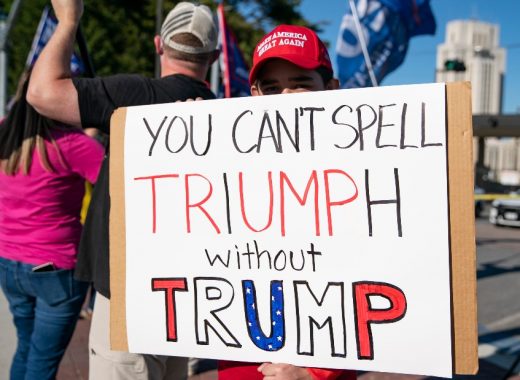 MAKE AMERICA
GREAT AGAIN
YOU CAN'T SPELL
TRIUMPH
without
TRUMP